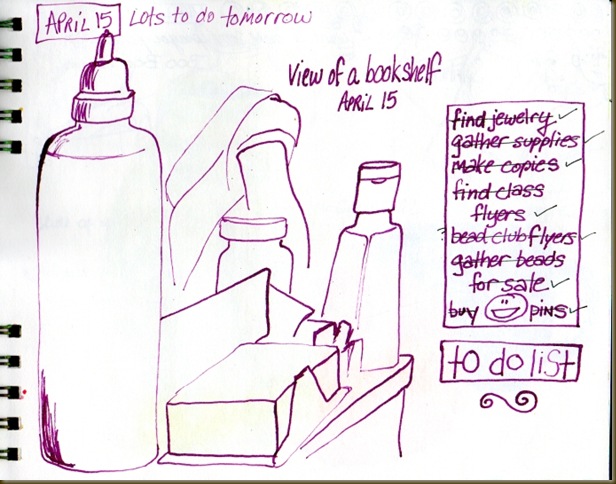 APRIL 15 Lots to do tomorrow
View of a bookshelf
APRIL 15
find jewelry ✓
gather supplies ✓
make copies ✓
find class
flyers ✓
? bead club flyers ✓
gather beads
for sale ✓
buy ☺ pins ✓
to do list